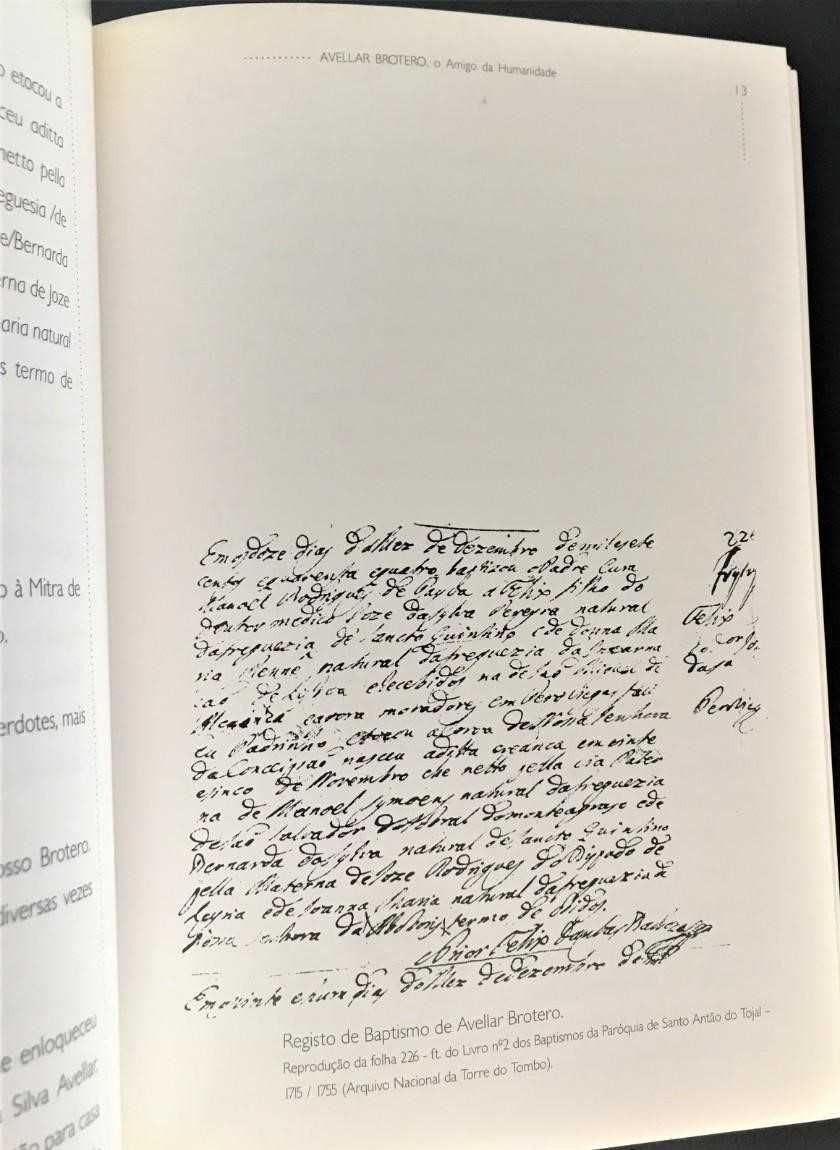 o etocou a
ceu aditta
netto pella
eguesia /de
e/Bernarda
erna de Joze
aria natural
s termo de
o à Mitra de
o.
erdotes, mais
osso Brotero.
diversas vezes
e enloqueceu
a Silva Avellar.
ão para casa
AVELLAR BROTERO, o Amigo da Humanidade
13
Em os doze dias do Mez de Dezembro de mil esete
centos equarenta equatro baptizou o Padre Cura
Manoel Rodrigues de Payva a Felix filho do
Doutor medico Joze dasylva Pereyra natural
dafreguezia de Sancto Quintino ede Donna Ma
ria Renne natural dafreguezia da Incarna
cao de Lisboa erecebidos na de Sao Miguel de
Alcainça eagora moradores em
eu Padrinho etocou aCoroa de Nossa Senhora
da Conceiçaõ nasceu aditta creança em vinte
esinco de Novembro he netto pella via Pater
na de Manoel Symoens natural dafreguezia
de Saõ Salvador do Sobral do monte agraço ede
Bernarda dasylva natural de Sancto Quintino
pella Materna de Joze Rodrigues do Bispado de
Leyria ede Joanna Maria natural dafreguezia d
Nossa Senhora da termo de Obidos.
Prior Felix
Em ovinte ehum dias do Mez de Dezembro de mil
226
Felix
Registo de Baptismo de Avellar Brotero.
Reprodução da folha 226 - ft. do Livro nº2 dos Baptismos da Paróquia de Santo Antão do Tojal –
1715 / 1755 (Arquivo Nacional da Torre do Tombo).